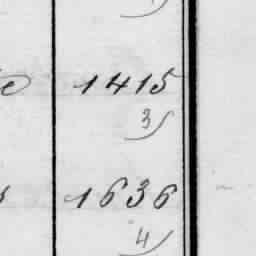 1415
3
1636
4